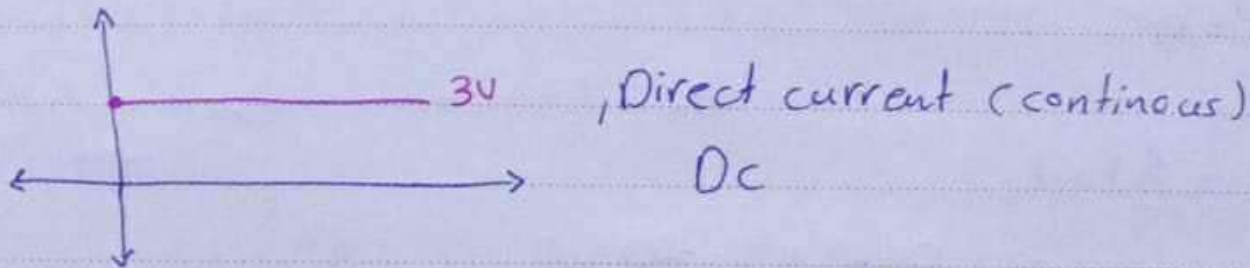 3V , Direct current (continous)
Dc